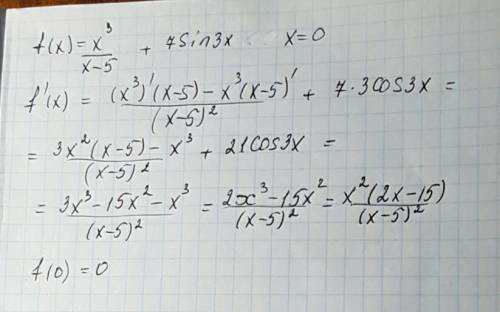 f(x) = x³/(x-5) + 7sin3x x=0
f'(x) = ((x³)'(x-5) - x³(x-5)')/(x-5)² + 7·3cos3x =
= (3x²(x-5) - x³)/(x-5)² + 21cos3x =
= (3x³-15x²-x³)/(x-5)² = (2x³-15x²)/(x-5)² = x²(2x-15)/(x-5)²
f(0) = 0